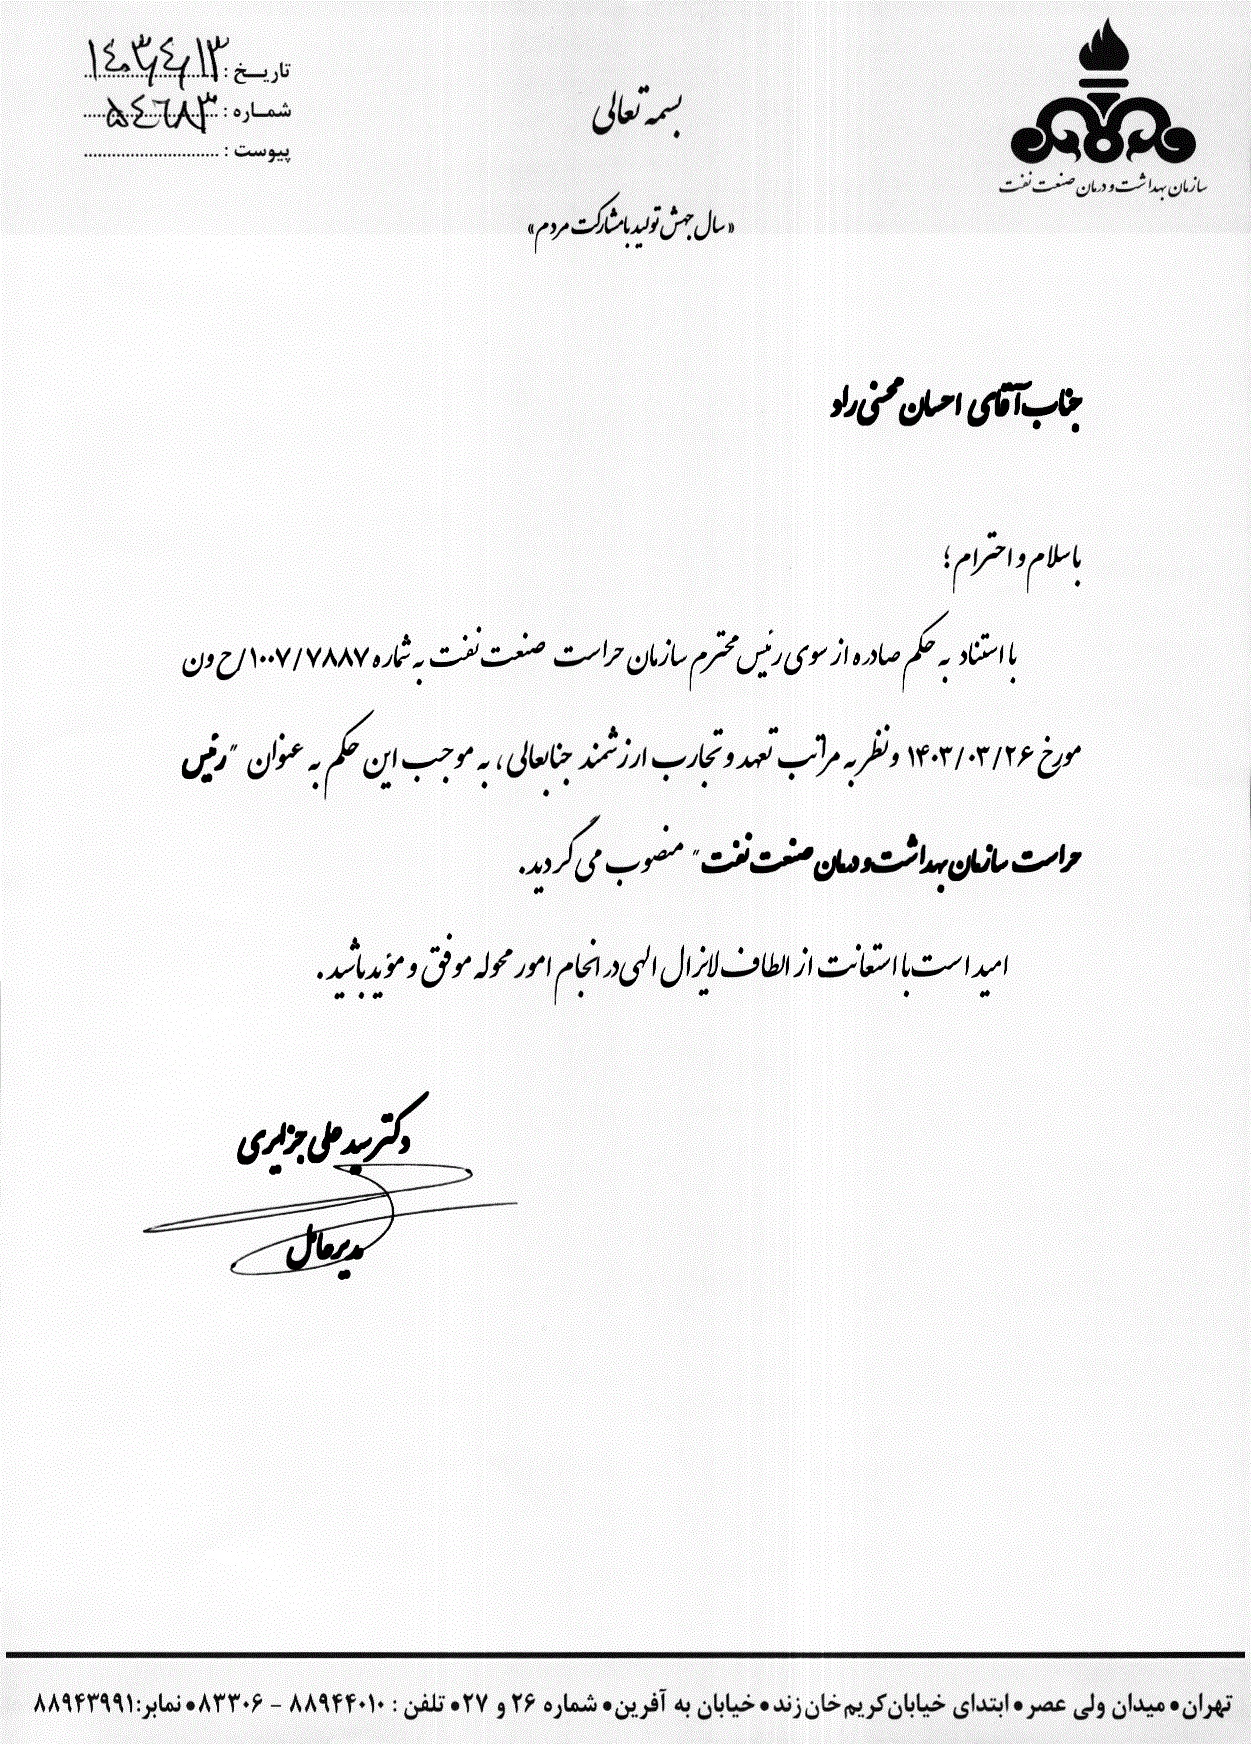 تاریخ : ۱۴۰۳/۴/۱۳
شماره : ۵۴۶۸۳
پیوست :
بسمه تعالی
سازمان بهداشت و درمان صنعت نفت
«سال جهش تولید با مشارکت مردم»
جناب آقای احسان محسنی راد
با سلام و احترام ؛
با استناد به حکم صادره از سوی رئیس محترم سازمان حراست صنعت نفت به شماره ۱۰۰۷/۷۸۸۷/ح ون
مورخ ۱۴۰۳/۰۳/۲۶ و نظر به مراتب تعهد و تجارب ارزشمند جنابعالی ، به موجب این حکم به عنوان "رئیس
حراست سازمان بهداشت و درمان صنعت نفت" منصوب می گردید.
امید است با استعانت از الطاف لایزال الهی در انجام امور محوله موفق و مؤید باشید .
دکتر سید علی جزایری
مدیرعامل
تهران • میدان ولی عصر • ابتدای خیابان کریم خان زند • خیابان به آفرین • شماره ۲۶ و ۲۷ • تلفن : ۸۸۹۴۴۰۱۰ - ۸۳۳۰۶ • نمابر: ۸۸۹۴۳۹۹۱